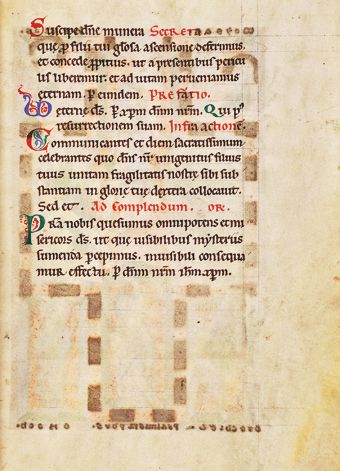 Suscipe dn̄e munera Secreta
que ꝑ filii tui gl̄osa ascensione deferimus.
et concede ꝓpitius. ut a presentibus pericu
lis liberemur. et ad uitam perueniamus
eternam. ꝑ eundem. Prefatio.
eterne ds̄. ꝑ xp̄m dn̄m nr̄m. Qui p'
resurrectionem suam. Infra actione.
Communicantes et diem sacratissimum
celebrantes quo dn̄s nr̄ unigenitus filius
tuus unitam fragilitatis nostre sibi sub
stantiam in glorie tue dextera collocauit.
Sed et. Ad Complendum. or̄.
Pr̄a nobis quesumus omnipotens et mi
sericors ds̄. ut que uisibilibus mysteriis
sumenda ꝑcepimus. inuisibili consequa
mur effectu. ꝑ dn̄m nr̄m ih̄m xp̄m.